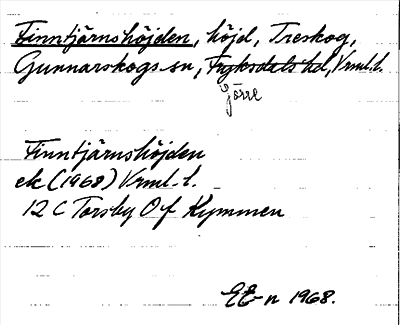 Finntjärnshöjden, höjd, Treskog,
Gunnarskogs sn, Fryksdals hd, Vrml. l.
Jösse
Finntjärnshöjden
ek (1968) Vrml. l.
12 C Torsby Of Kymmen
1968.